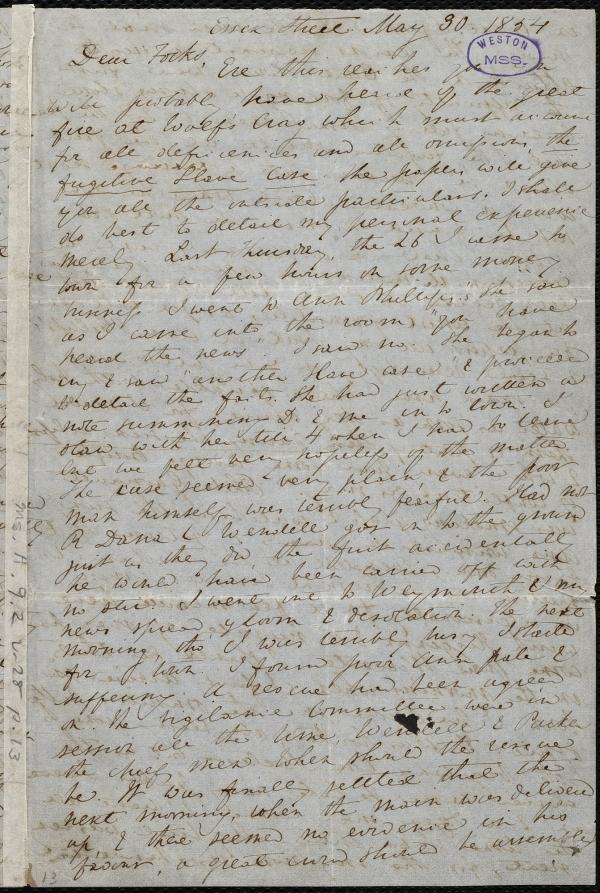 Essex Street May 30. 1854
WESTON
MSS.
Dear Folks,
Ere this reaches you
will probably have heard of the great
fire at Wolf's Crag which must account
for all deficiencies and all omissions, the
fugitive Slave case. The papers will give
you all the outside particulars. I shall
do best to detail my personal experience
merely. Last Thursday, the 26 I came to
town for a few hours on some money
business I went to Ann Phillips's. She said
as I came into the room "you have
heard the news". I said no. She began to
cry & said "another slave case" & proceeded
to detail the facts. She had just written a
note summoning D. & me in to town. I
staid with her till 4 when I had to leave
but we felt very hopeless of the matter
The case seemed very plain & the poor
man himself was terribly fearful. Had not
R Dana & Wendell got on to the ground
just as they did the first accidentally
he would have been carried off with
no stir. I went out to Weymouth & my
news spread gloom & desolation. The next
morning tho I was terribly busy I started
for town. I found poor Ann pale &
suffering. A rescue had been agreed
on. The vigilance Committee were in
session all the time, Wendell & Parker
the chief men when should the rescue
be. It was finally settled that the
next morning, when the man was delivered
up, & there seemed no evidence in his
favour, a great crowd should be assembled
Ms. A. 9.2 v.28 p.13
13